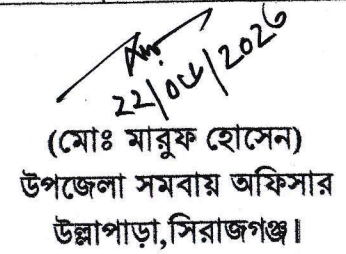 22/04/2026
(মোঃ মারুফ হোসেন)
উপজেলা সমবায় অফিসার
উল্লাপাড়া,সিরাজগঞ্জ।